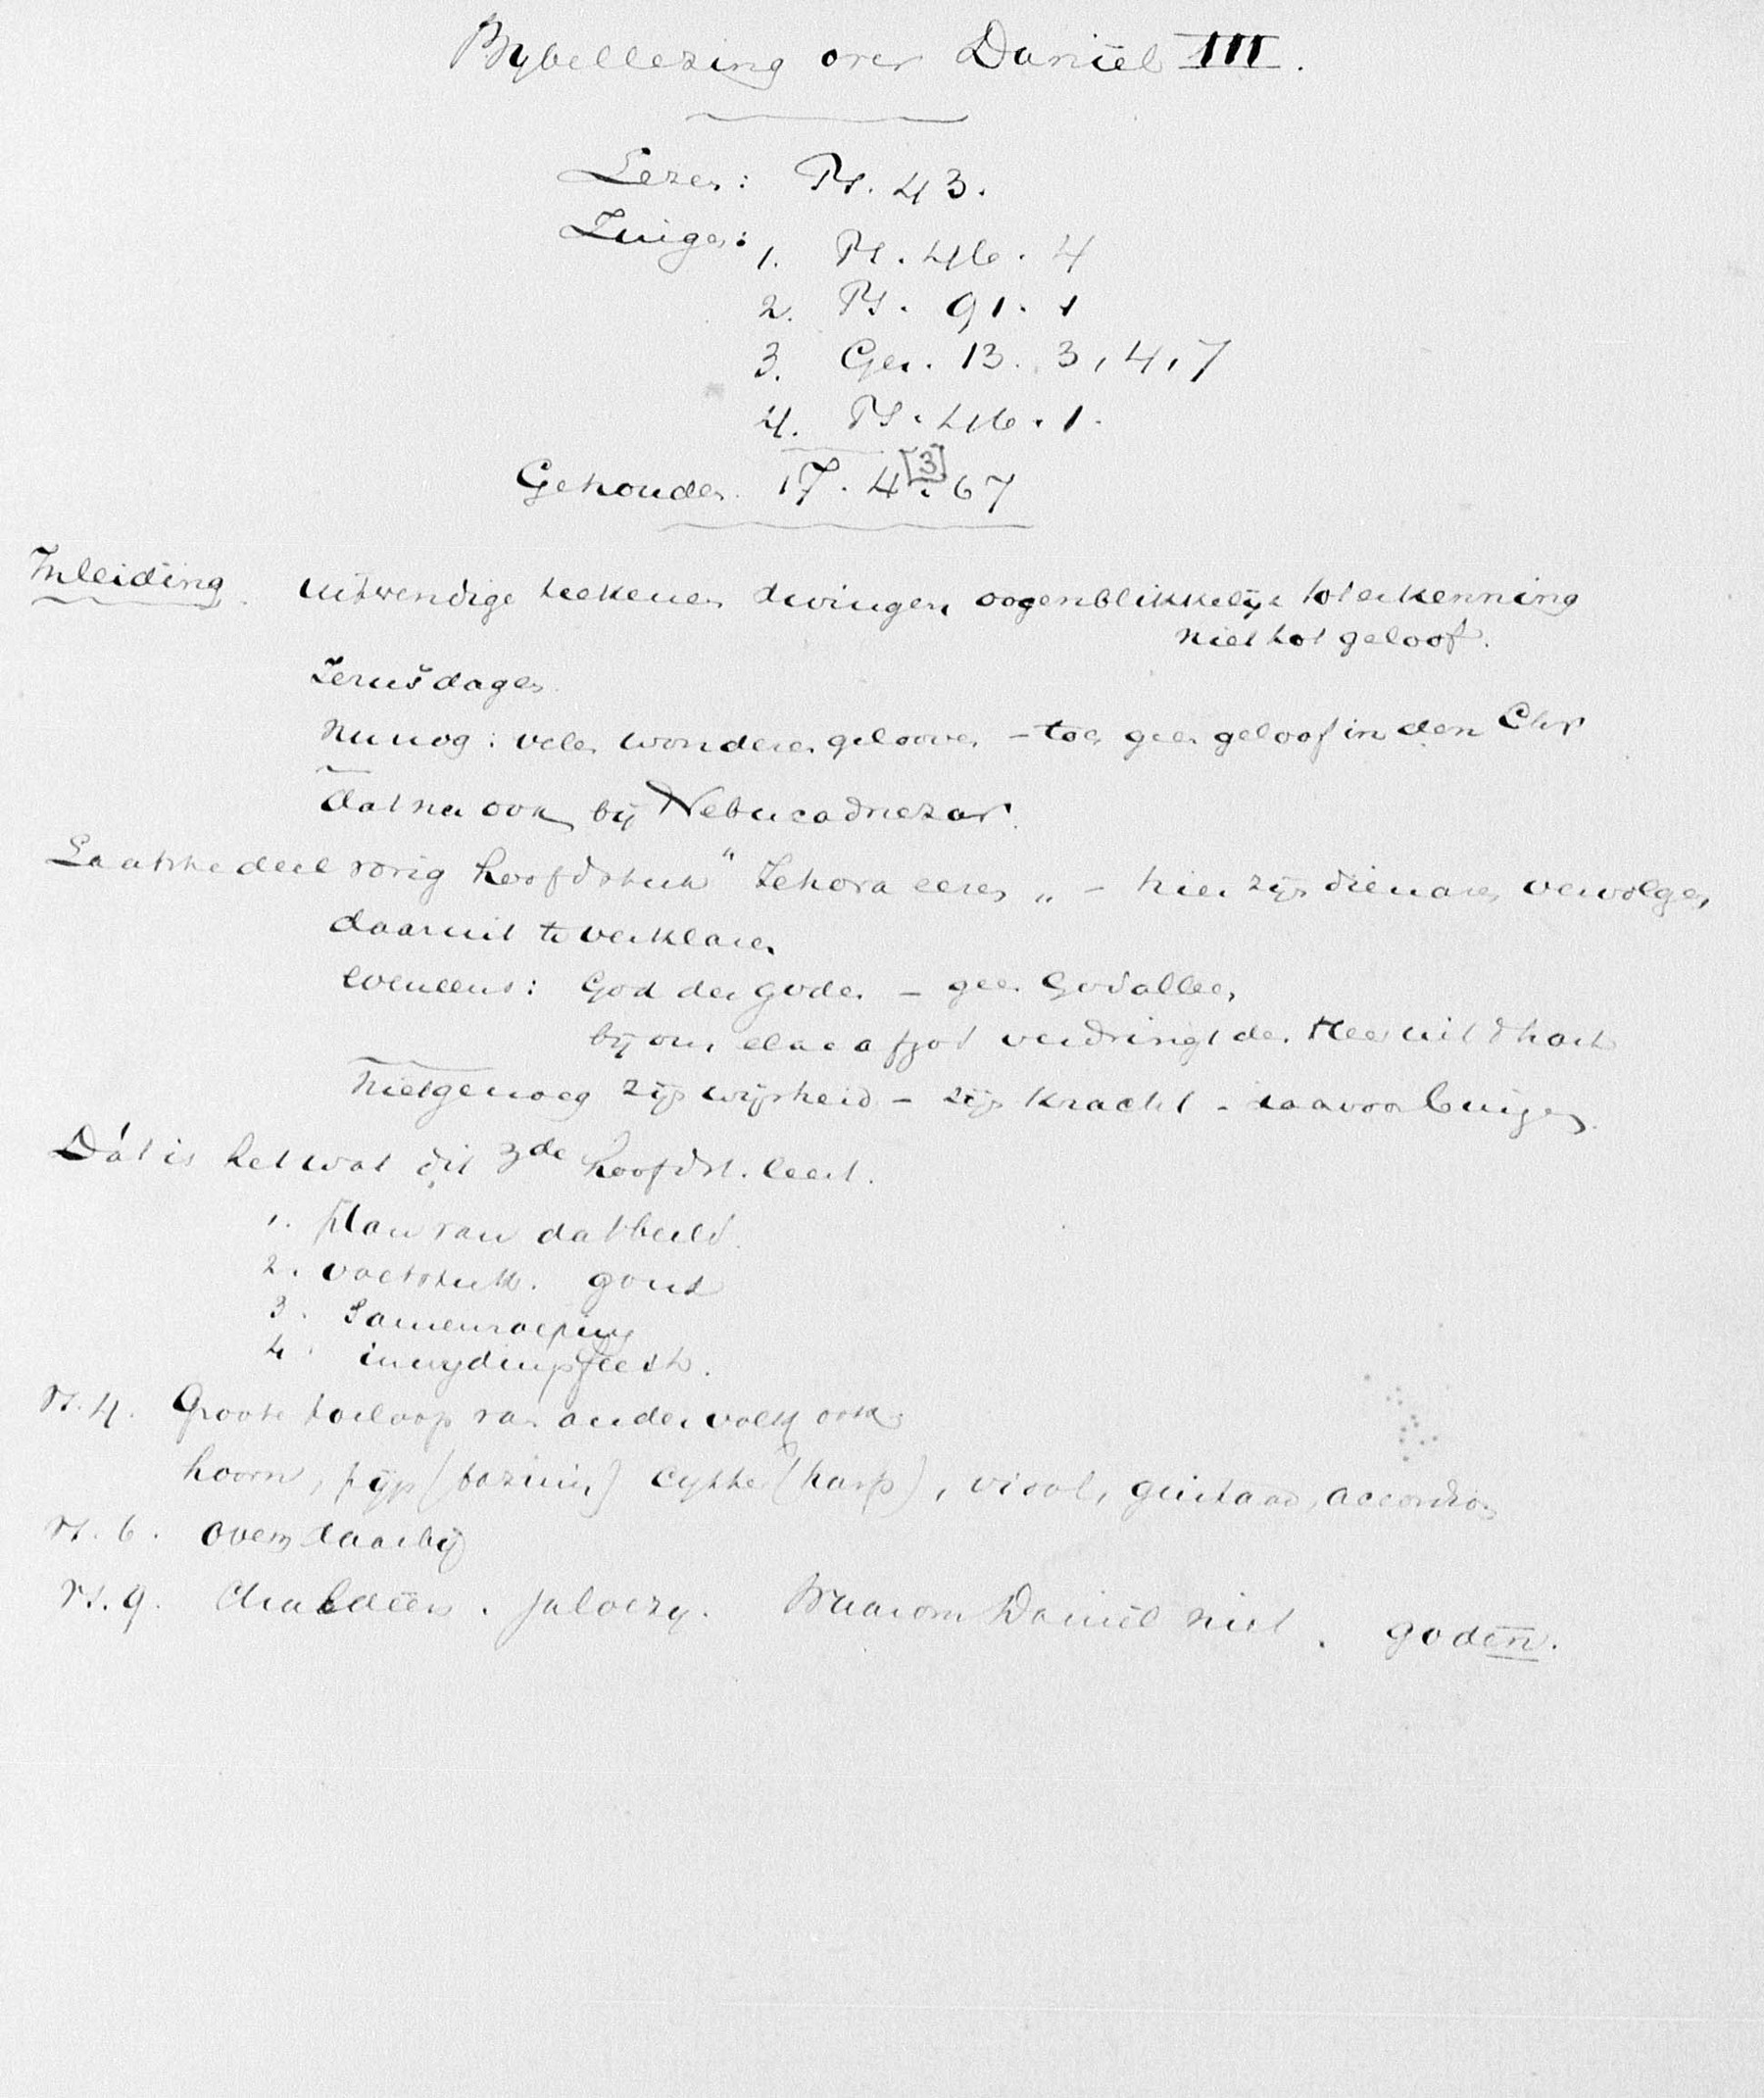 Bybellezing over Daniël III.
Lezen: Ps. 43.
Zingen:
1. Ps. 46. 4
2. Ps. 91. 1
3. Gez. 13. 3, 4, 7
4. Ps. 46. 1.
[3]
Gehouden 17. 4. 67
Inleiding. Uitwendige teekenen dwingen oogenblikkelijk tot erkenning
niet tot geloof.
Jezus dagen.
Nu nog: velen wonderen gelooven – toch geen geloof in den Chr
Dat nu ook bij Nebucadnezar.
Laatste deel vorig hoofdstuk "Jehova eeren" – hier zijn dienaren vervolgen
daaruit te verklaren
eveneens: God der goden – geen God alleen
bij ons elke afgod verdringt den Heer uit 't hart
Niet genoeg zijn wijsheid – zijn kracht – daarvoor buigen.
Dát is het wat dit 3de hoofdst. leert.
1. plan van dat beeld.
2. voetstuk. goud
3. Samenroeping
4. inwydingsfeest.
vs. 4. Groote toeloop van ander volk ook
hoorn, pijp (bazuin) cyther (harp), viool, guitaar, accordion
vs. 6. oven daarbij
vs. 9. Chaldeën. jaloezy. Waarom Daniël niet. goden.